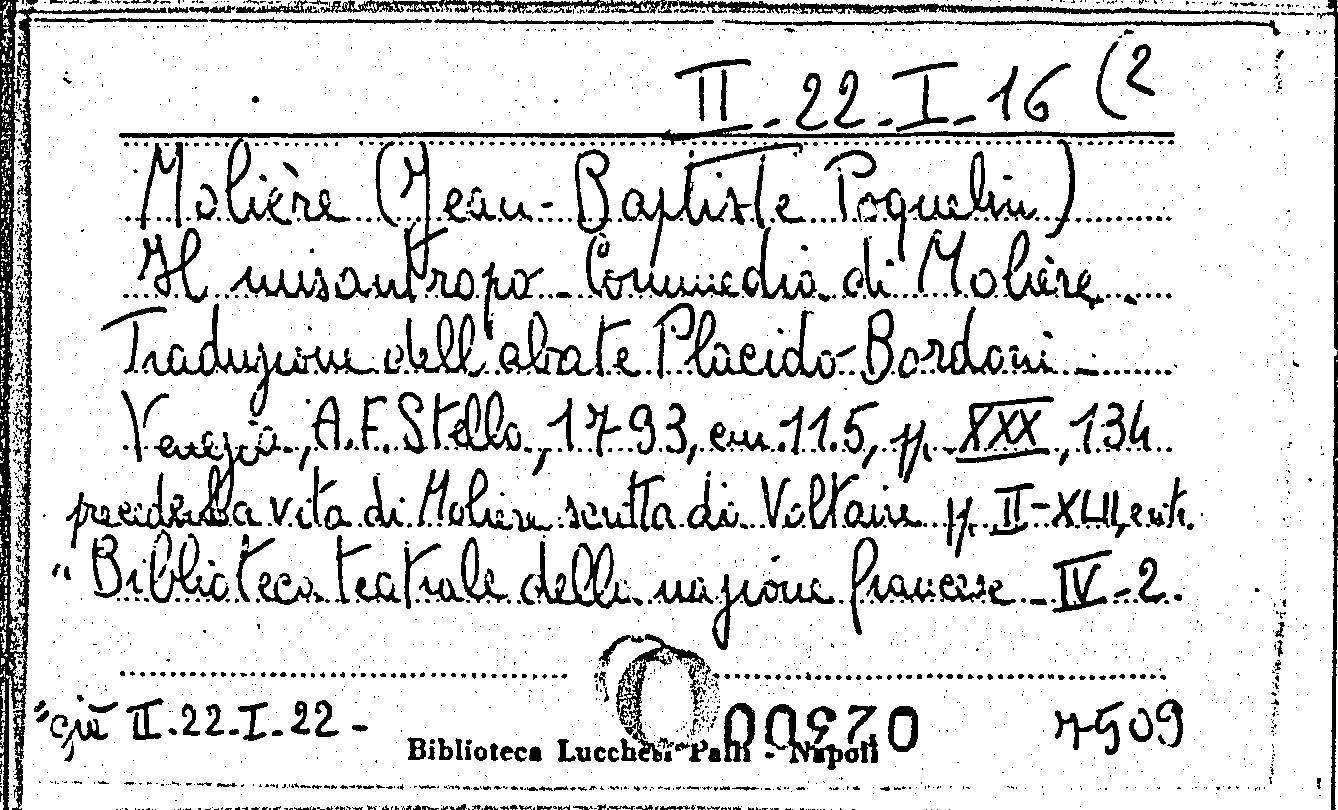 II-22-I-16 (2
Molière (Jean-Baptiste Poquelin)
Il misantropo - Commedia di Molière -
Traduzione dell'abate Placido Bordoni -
Venezia, A.F. Stella, 1793, cm. 11.5, pp. XXX, 134
precede la vita di Molière scritta di Voltaire pp. II-XLII, estr.
"Biblioteca teatrale della nazione francese - IV-2.
già II.22.I.22 -
7509
Biblioteca Lucchesi Palli - Napoli